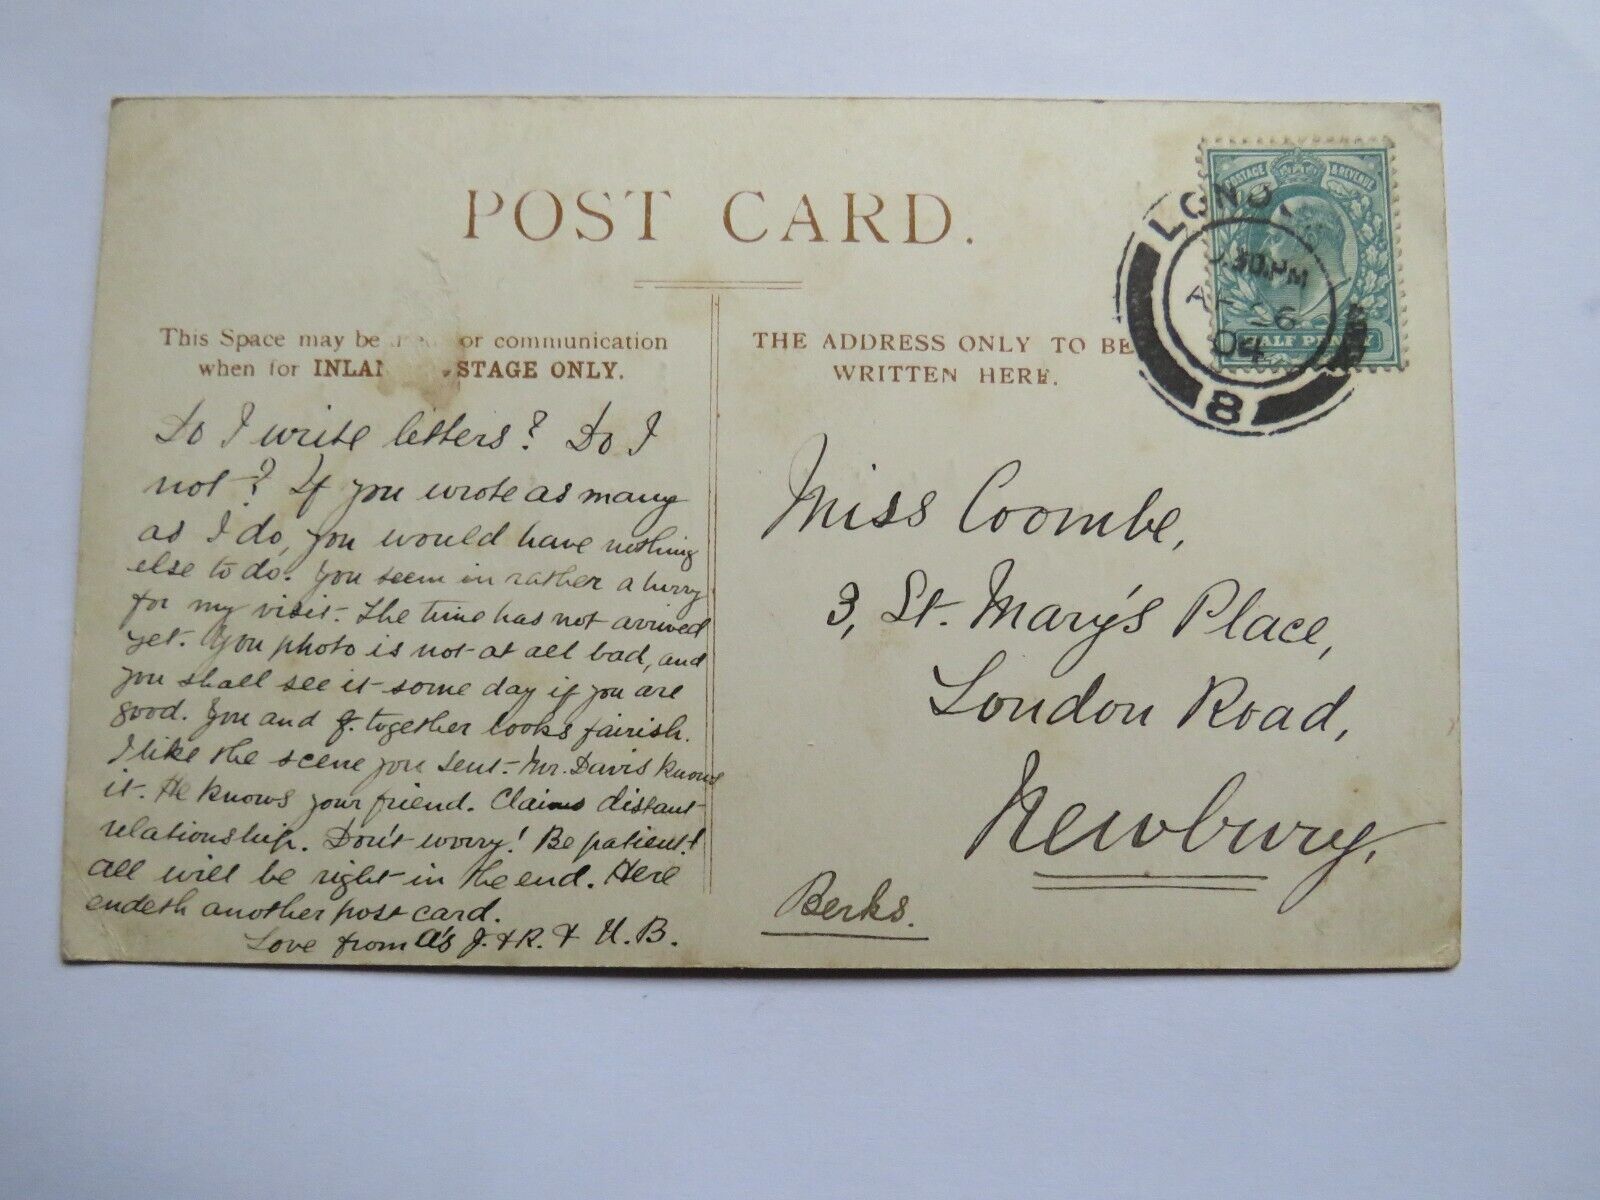 POST CARD.
This Space may be or communication
when for INLAN STAGE ONLY.
THE ADDRESS ONLY TO BE
WRITTEN HERE.
POSTAGE & REVENUE
HALF PENNY
LONDO
.30.PM
6
04
8
Do I write letters? Do I
not? If you wrote as many
as I do, you would have nothing
else to do. You seem in rather a hurry
for my visit. The time has not arrived
yet. You photo is not at all bad, and
you shall see it some day if you are
good. You and J. together looks fairish.
I like the scene you sent. Mr. Davis knows
it. He knows your friend. Claims distant
relationship. Don't worry! Be patient!
All will be right in the end. Here
endeth another post card.
Love from a's J. & R. & U. B.
Miss Coombe,
3, St. Mary's Place,
London Road,
Newbury,
Berks.